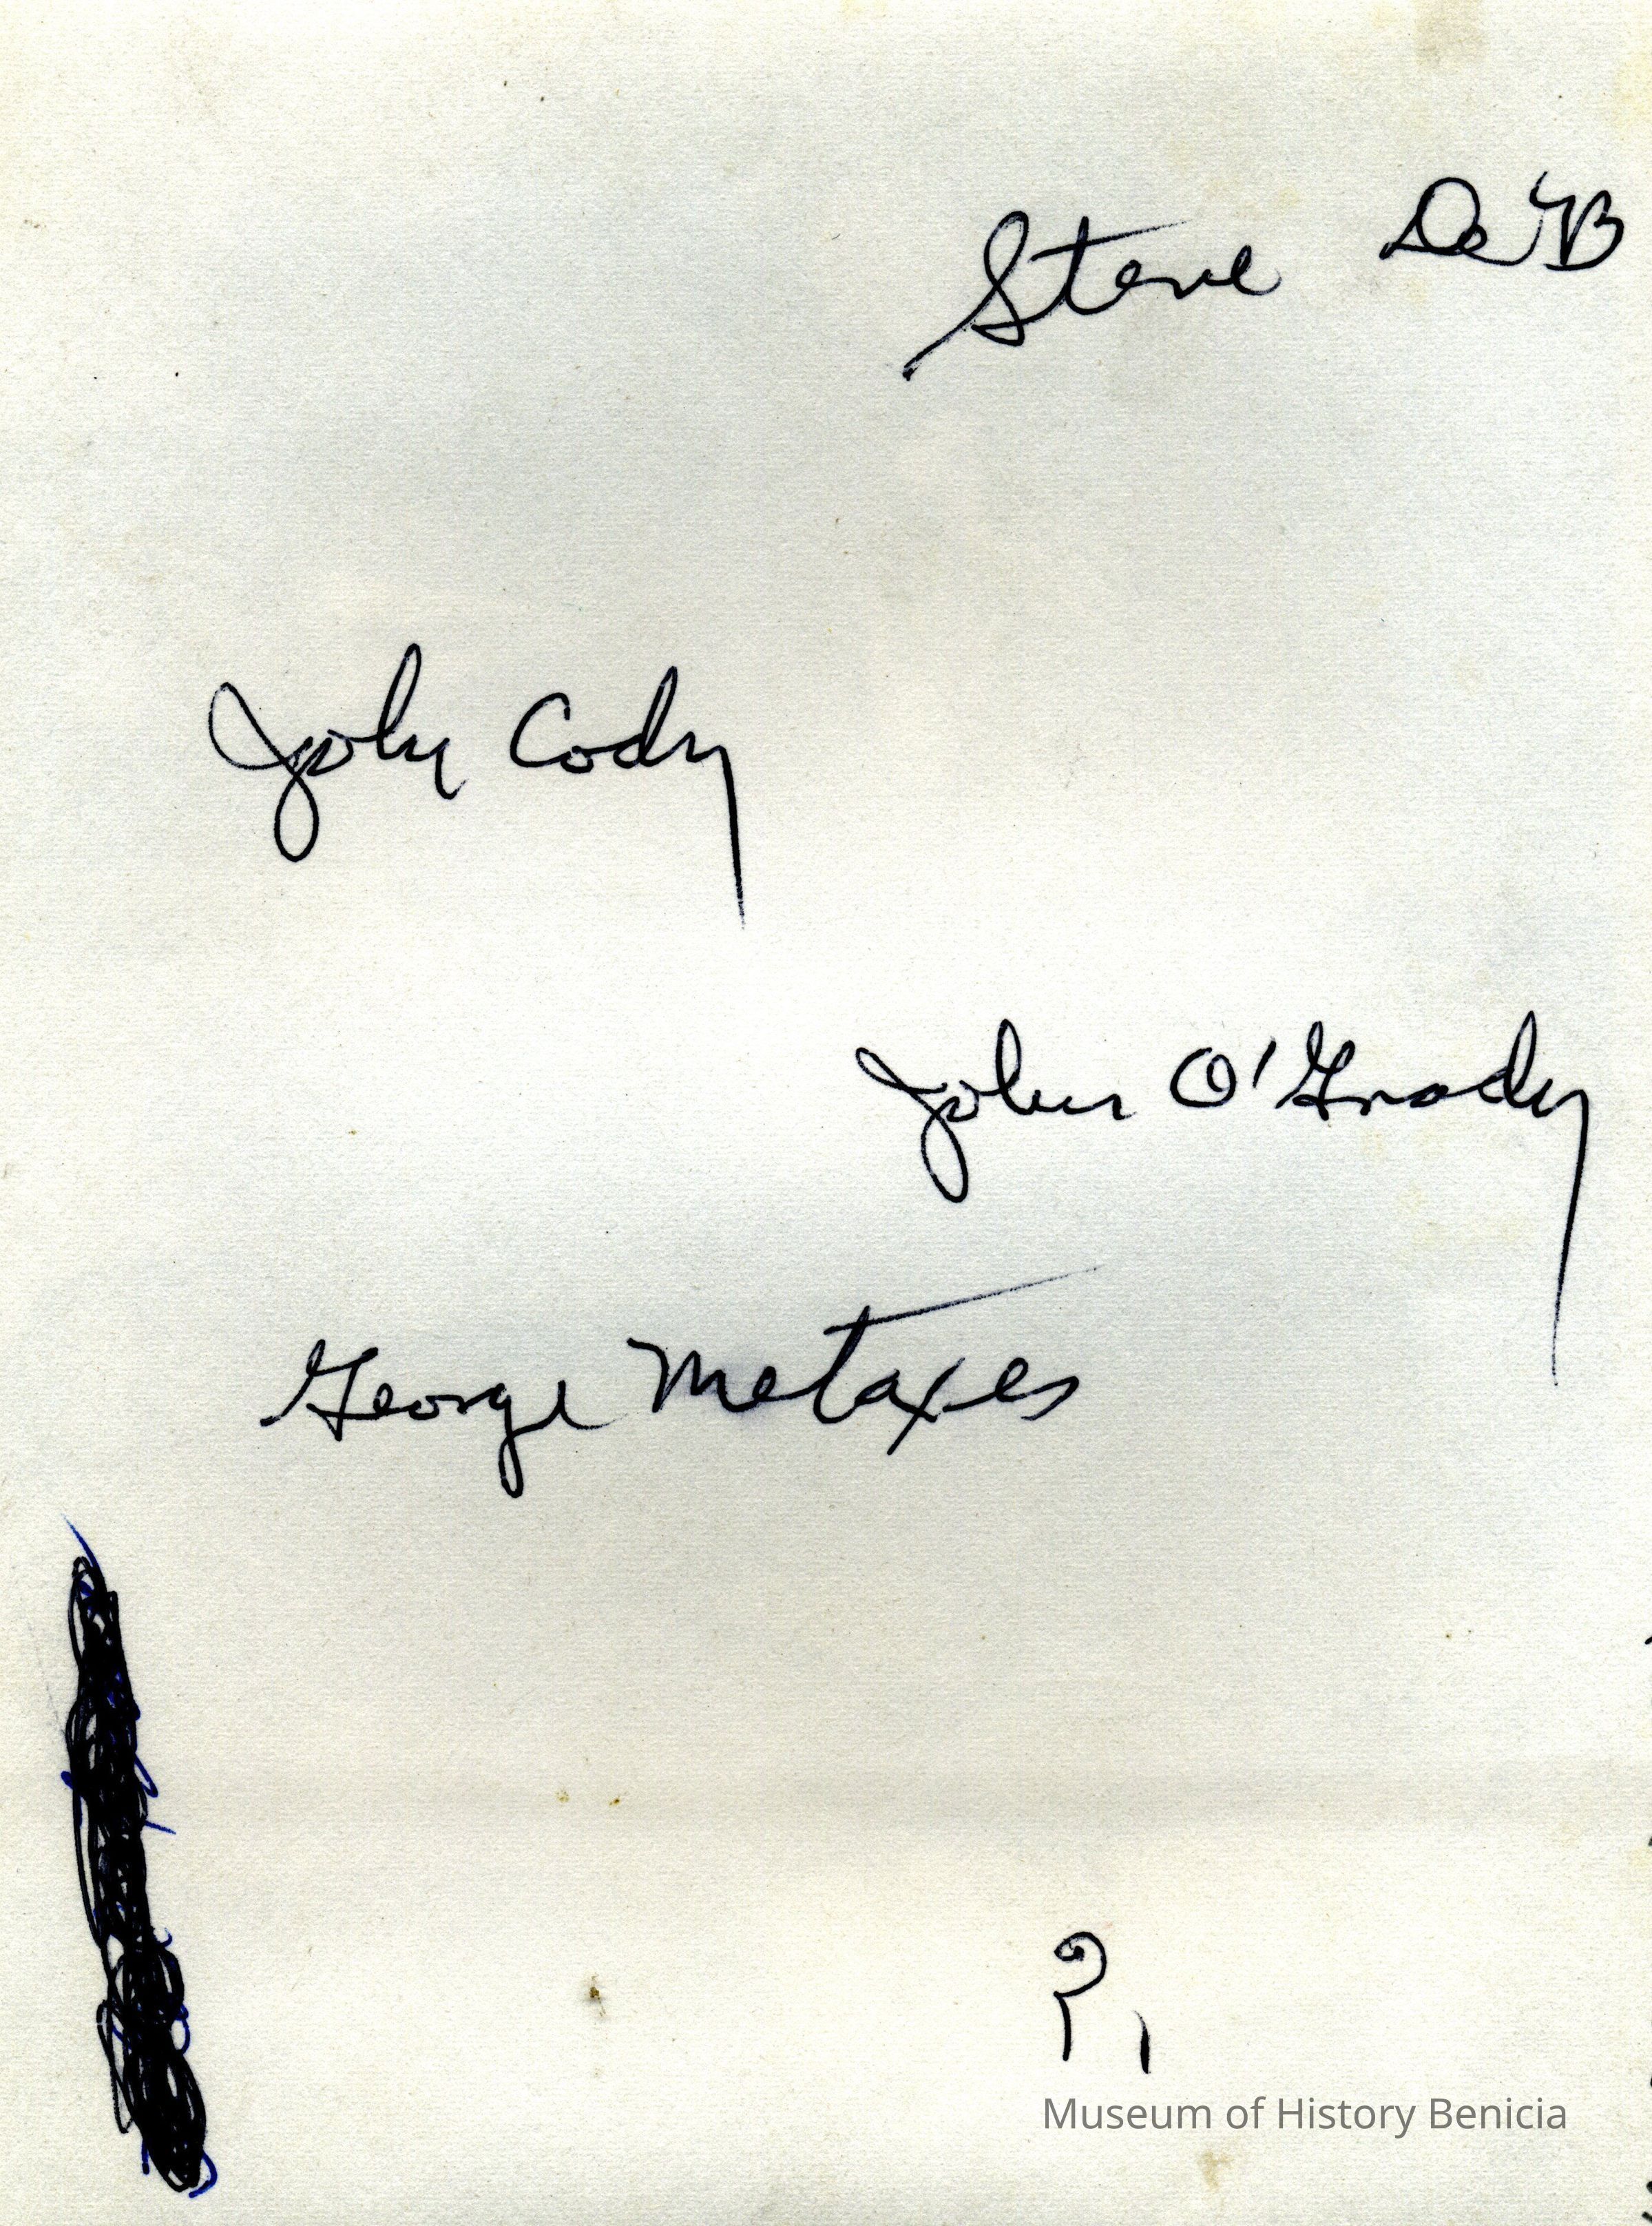 Steve De B
John Cody
John O'Grady
George Metaxes
?
Museum of History Benicia